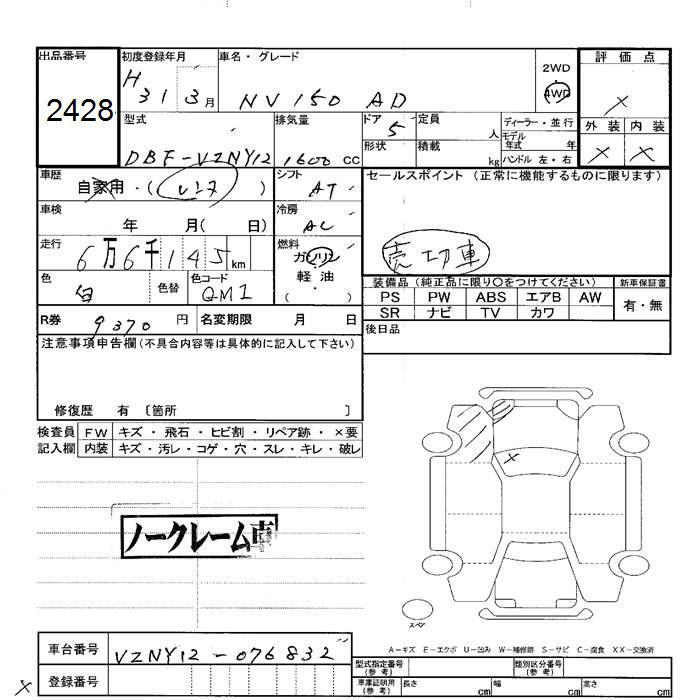 出品番号 初度登録年月 車名・グレード 評価点
2428 H 31 3月 NV150 AD 2WD 4WD X
型式 排気量 ドア 5 定員 人 ディーラー・並行 外装 内装
モデル年式 年
DBF-VZNY12 1600 cc 形状 積載 kg ハンドル 左・右 X X
車歴 自家用・( ) シフト AT セールスポイント (正常に機能するものに限ります)
車検 年 月( 日) 冷房 AC
走行 6万6千145 km 燃料 ガソリン 軽油 ( ) 売切車
色 白 色替 色コード QM1
装備品 (純正品に限り○をつけてください) 新車保証書
PS PW ABS エアB AW 有・無
SR ナビ TV カワ
R券 9370 円 名変期限 月 日 後日品
注意事項申告欄(不具合内容等は具体的に記入して下さい)
修復歴 有 〔箇所 〕
検査員 FW キズ・飛石・ヒビ割・リペア跡・×要
記入欄 内装 キズ・汚レ・コゲ・穴・スレ・キレ・破レ
X
ノークレーム車
スペア
A-キズ E-エクボ U-凹み W-補修跡 S-サビ C-腐食 XX-交換済
車台番号 VZNY12-076832
型式指定番号 (参考) 類別区分番号 (参考)
X 登録番号 車庫証明用 (参考) 長さ cm 幅 cm 高さ cm